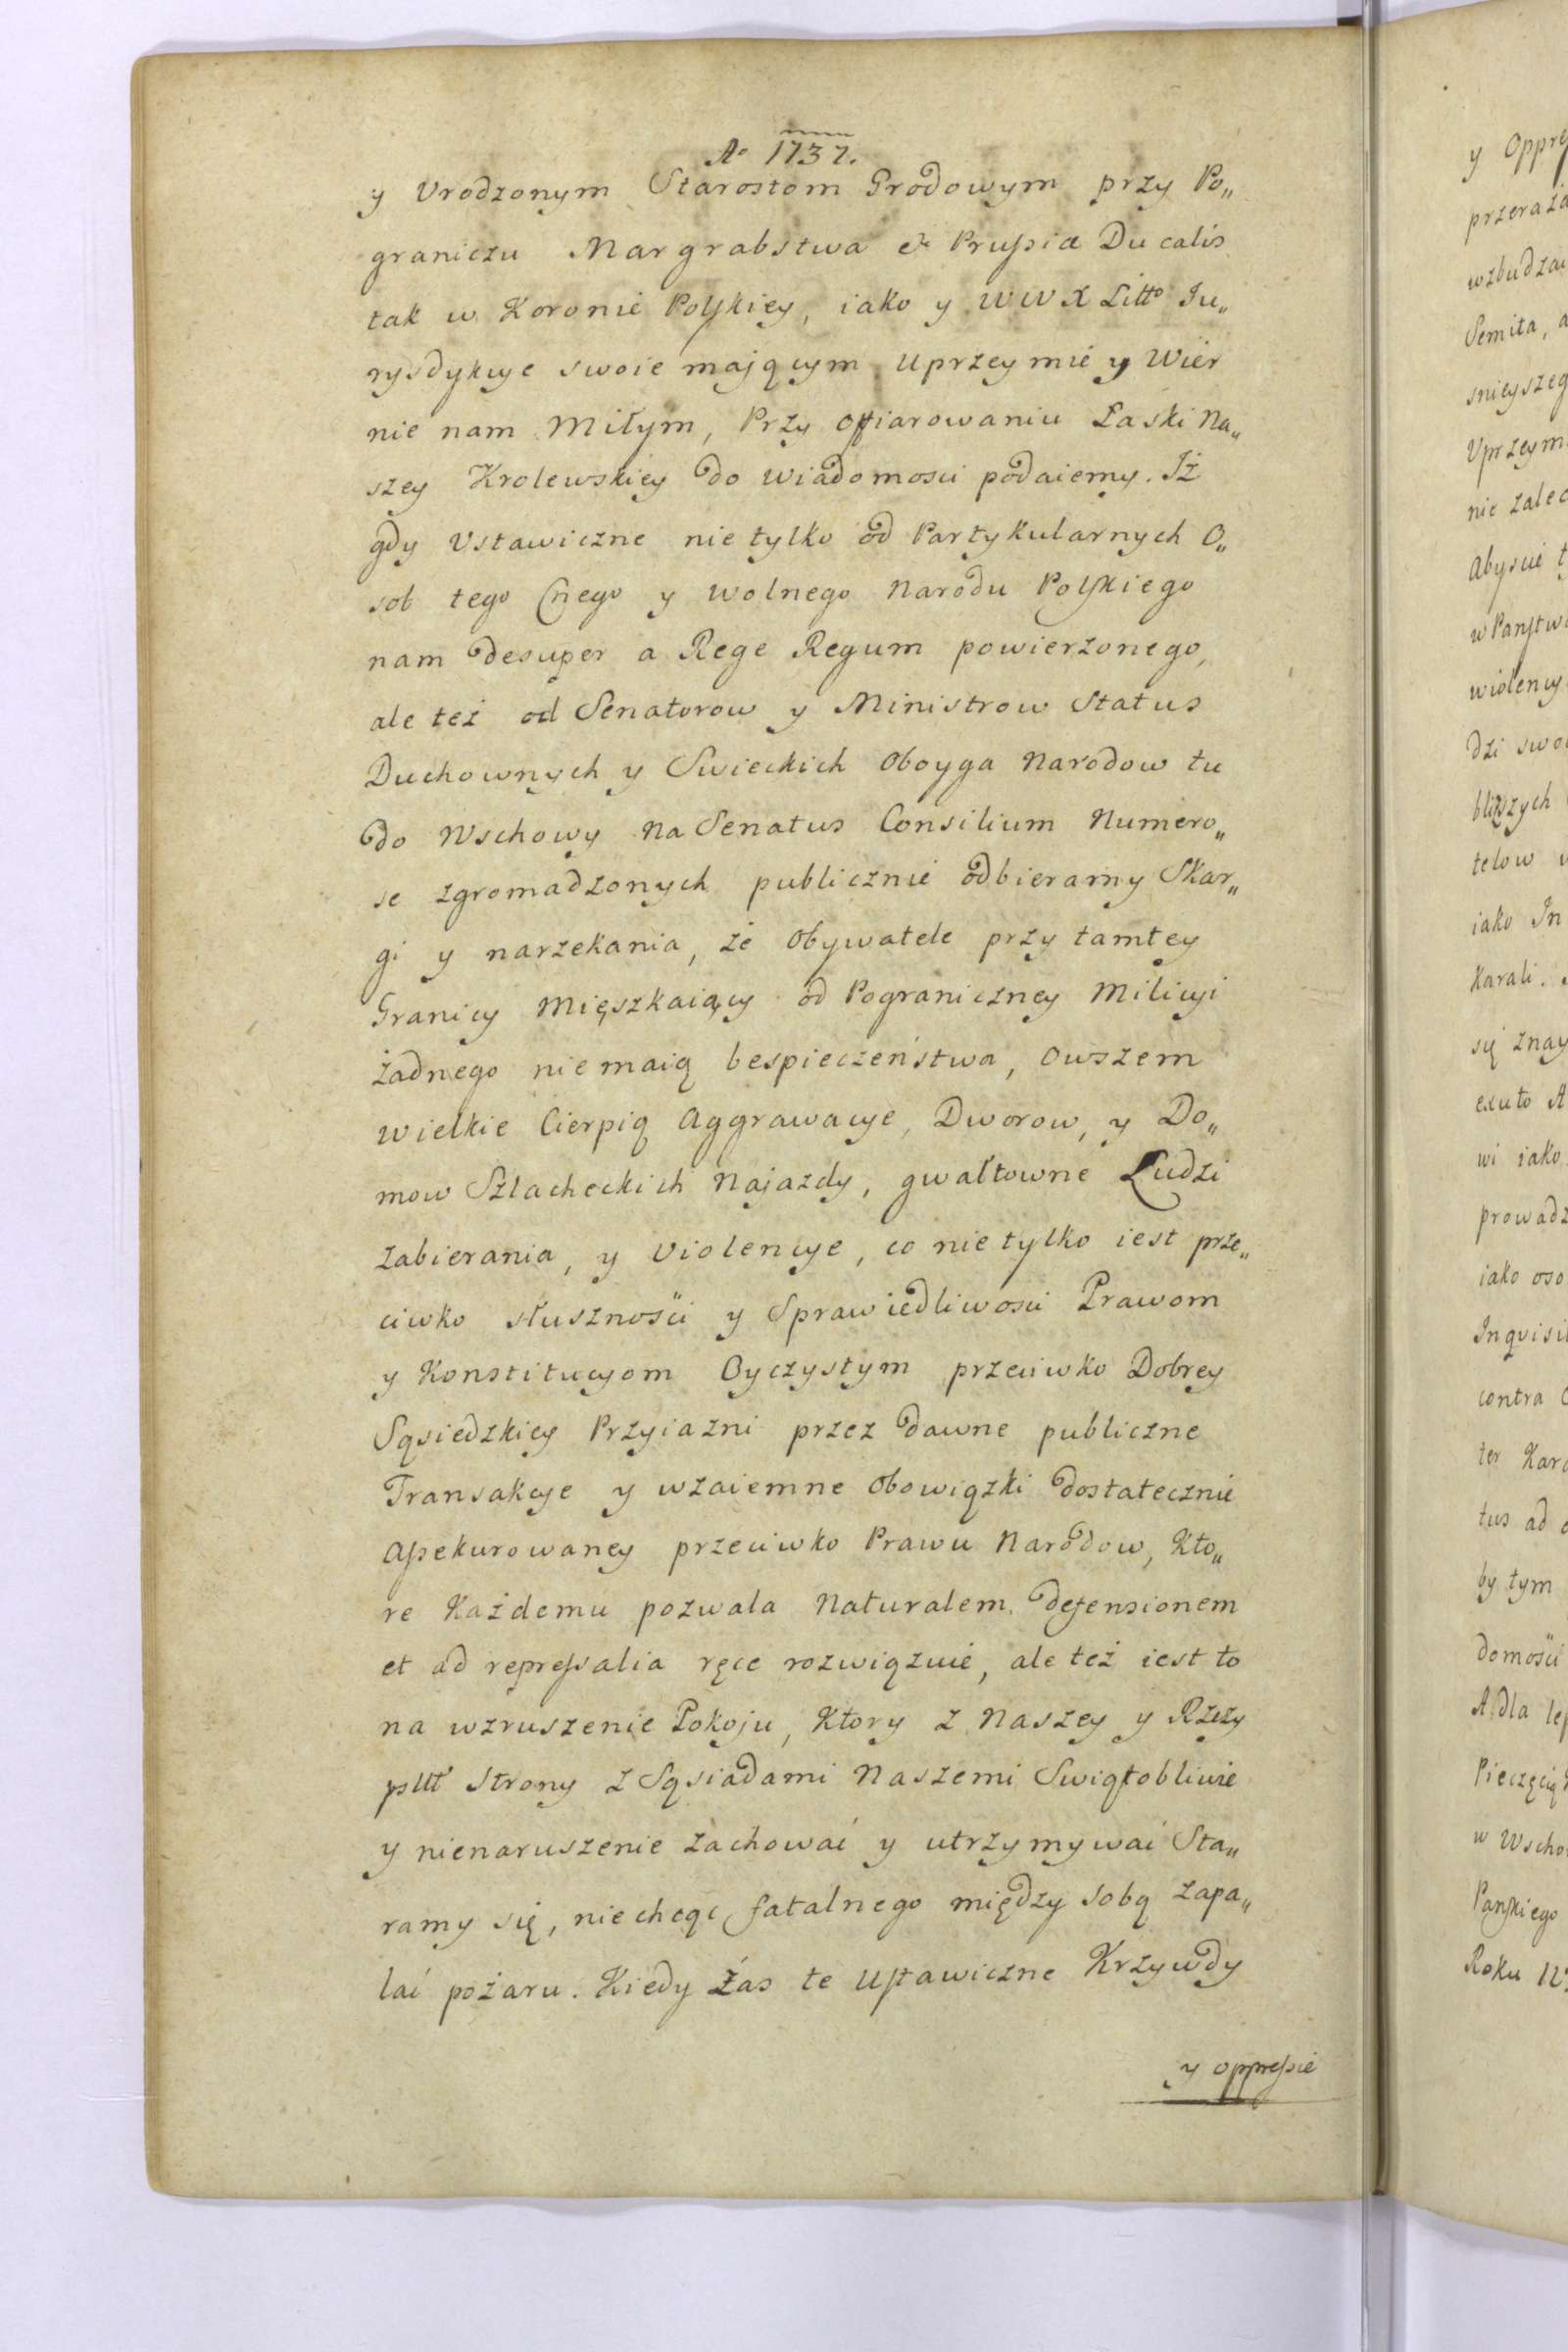 Aº 1737.
y Urodzonym Starostom Grodowym przy Po„
graniczu Margrabstwa & Prussiæ Ducalis
tak w Koronie Polskiey, iako y W W X Litto Ju„
rysdykcye swoie mającym. Uprzeymie y Wier
nie nam Miłym, Przy offiarowaniu Łaski Na„
szey Krolewskiey do wiadomosci podaiemy. Iż
gdy Ustawiczne nie tylko od Partykularnych O„
sob tego y wolnego Narodu Polskiego
nam desuper a Rege Regum powierzonego,
ale też od Senatorow y Ministrow Status
Duchownych y Swieckich Oboyga Narodow tu
do Wschowy na Senatus Consilium Numero„
se zgromadzonych publicznie odbieramy Skar„
gi y narzekania, że Obywatele przy tamtey
Granicy Mięszkaiący od Pograniczney Milicyi
żadnego nie maią bespieczeństwa, Owszem
wielkie Cierpią Aggrawacye, Dworow, y Do„
mow Szlacheckich Najazdy, gwałtowne Ludzi
zabierania, y Violencye, co nie tylko iest prze„
ciwko słuszności y Sprawiedliwosci Prawom
y Konstitucyom Oyczystym przeciwko Dobrey
Sąsiedzkiey Przyiazni przez dawne publiczne
Transakcye y wzaiemne Obowiązki dostatecznie
Assekurowaney przeciwko Prawu Narodow, Kto„
re Każdemu pozwala Naturalem defensionem
et ad repressalia ręce rozwiązuie, ale też iest to
na wzruszenie Pokoju, Ktory z Naszey y Rzczy
pltt Strony z Sąsiadami Naszemi Swiątobliwie
y nienaruszenie zachować y utrzymywać Sta„
ramy się, nie chcąc fatalnego między sobą zapa„
lać pożaru. Kiedy Zas te Ustawiczne Krzywdy
y oppressie
y Oppre
przeraża
wzbudzai
Semita, a
snieyszeg
Uprzeym
nie zalec
Abyscie t
w Panstw
wiolency
dzi swo
bliższych
telow
iako In
Karali.
się znay
exuto A
wi iako
prowadz
iako oso
Inquisi
contra
ter Kar
tus ad
by tym
domości
A dla lep
Pieczęcią
w Wscho
Panskiego
Roku